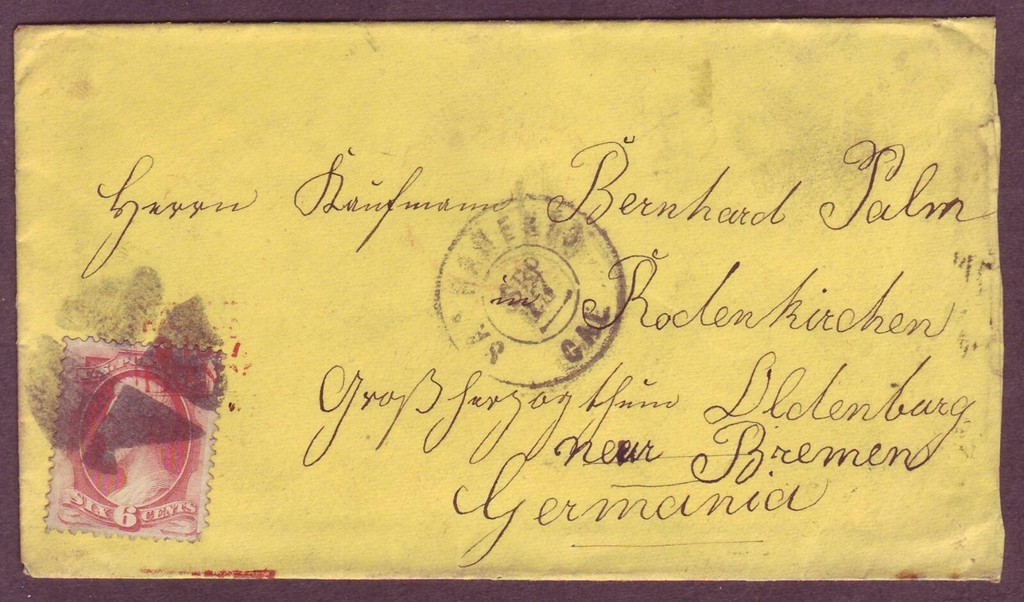 Herrn Kaufmann Bernhard Palm
in Rodenkirchen
Großherzogthum Oldenburg
near Bremen
Germania
SACRAMENTO
CAL
SIX 6 CENTS